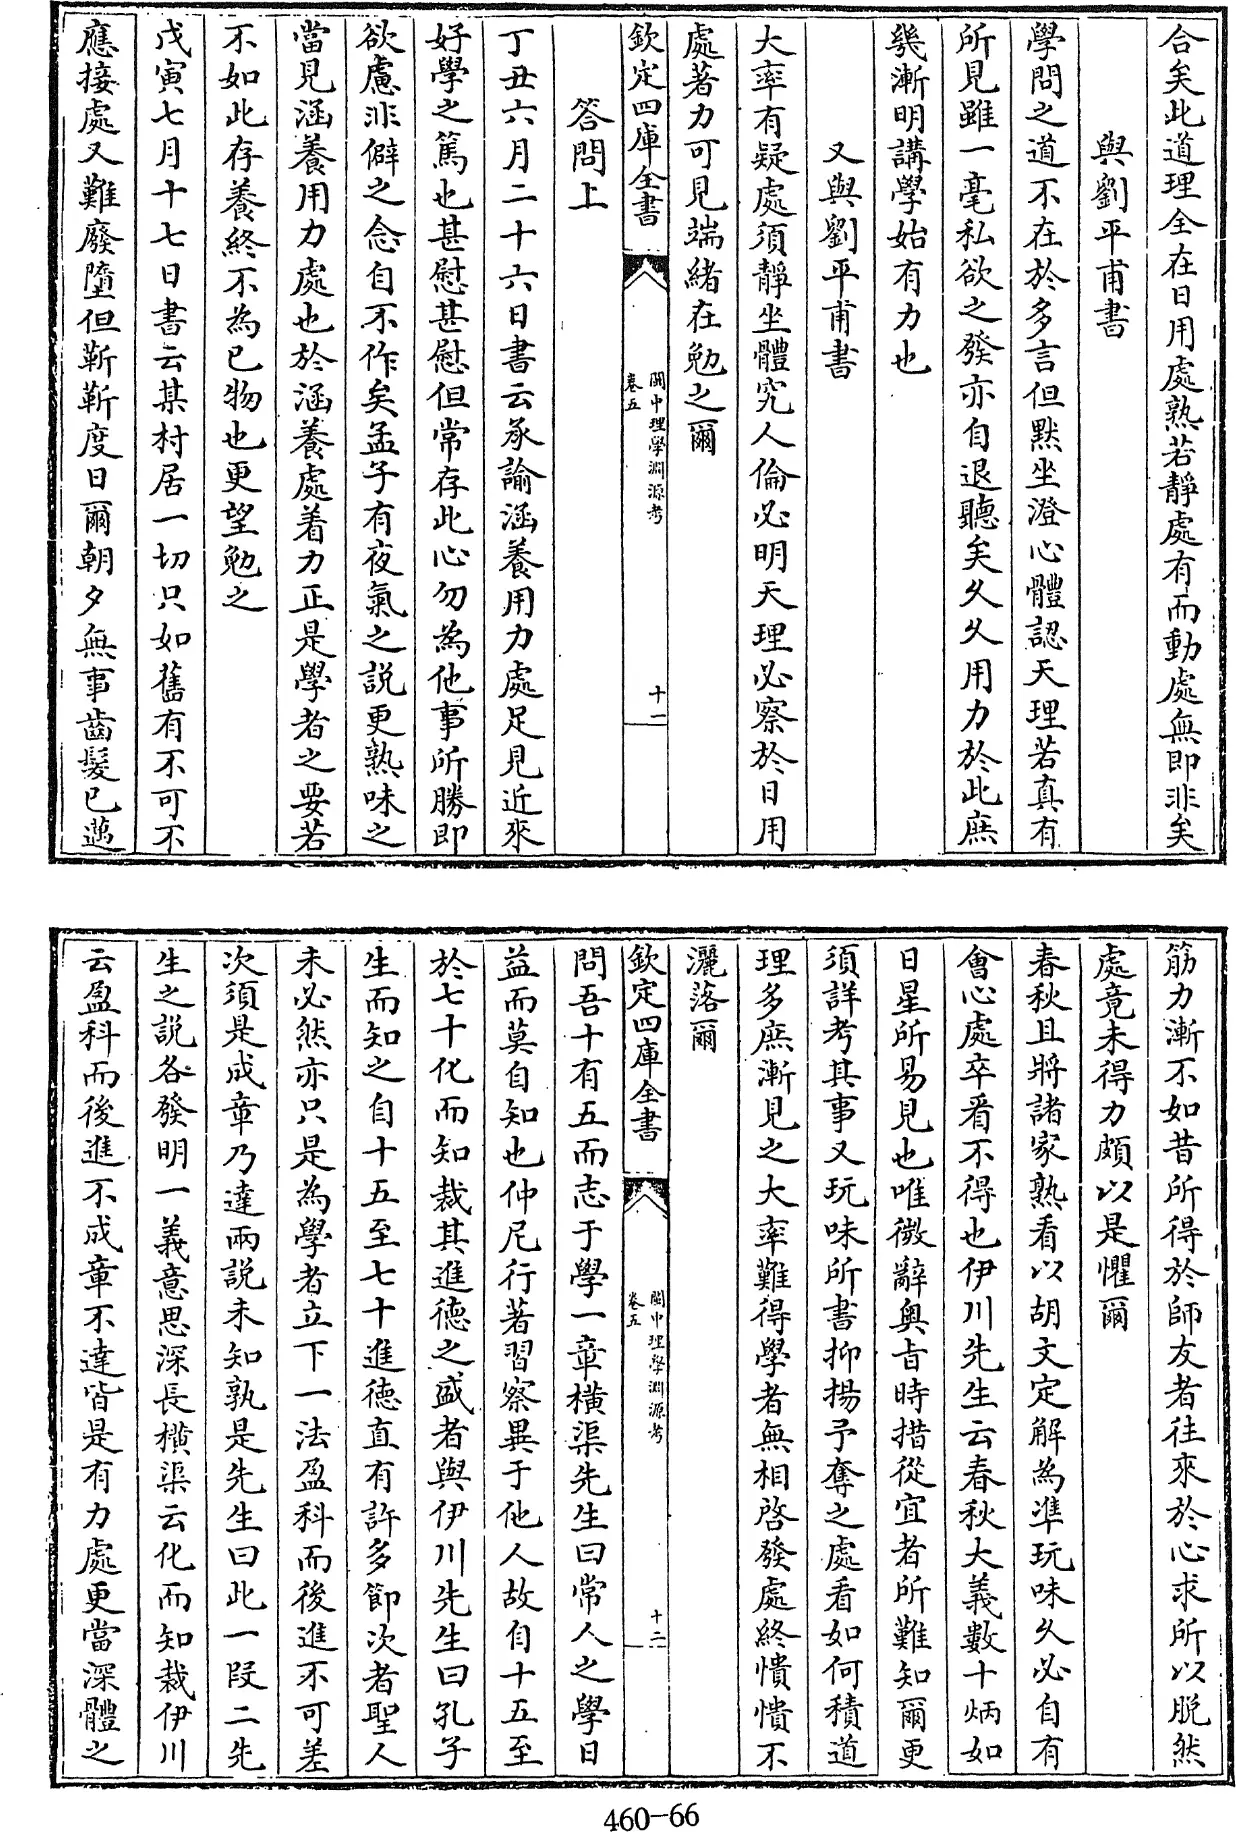 合矣此道理全在日用處熟若靜處有而動處無即非矣
與劉平甫書
學問之道不在於多言但黙坐澄心體認天理若真有
所見雖一毫私欲之發亦自退聽矣久久用力於此庶
㡬漸明講學始有力也
又與劉平甫書
大率有疑處須靜坐體究人倫必明天理必察於日用
處著力可見端緒在勉之爾
欽定四庫全書
閩中理學淵源考
卷五
十一
答問上
丁丑六月二十六日書云承諭涵養用力處足見近來
好學之篤也甚慰甚慰但常存此心勿為他事所勝即
欲慮非僻之念自不作矣孟子有夜氣之説更熟味之
當見涵養用力處也於涵養處着力正是學者之要若
不如此存養終不為已物也更望勉之
戊寅七月十七日書云某村居一切只如舊有不可不
應接處又難廢墮但靳靳度日爾朝夕無事齒髮已邁
筋力漸不如昔所得於師友者往來於心求所以脱然
處竟未得力頗以是懼爾
春秋且將諸家熟看以胡文定解為準玩味久必自有
會心處卒看不得也伊川先生云春秋大義數十炳如
日星所易見也唯微辭奥旨時措從宜者所難知爾更
須詳考其事又玩味所書抑揚予奪之處看如何積道
理多庶漸見之大率難得學者無相啓發處終憒憒不
灑落爾
欽定四庫全書
閩中理學淵源考
卷五
十二
問吾十有五而志于學一章横渠先生曰常人之學日
益而莫自知也仲尼行著習察異于他人故自十五至
於七十化而知裁其進徳之盛者與伊川先生曰孔子
生而知之自十五至七十進徳直有許多節次者聖人
未必然亦只是為學者立下一法盈科而後進不可差
次須是成章乃達兩説未知孰是先生曰此一段二先
生之説各發明一義意思深長横渠云化而知裁伊川
云盈科而後進不成章不達皆是有力處更當深體之
460-66